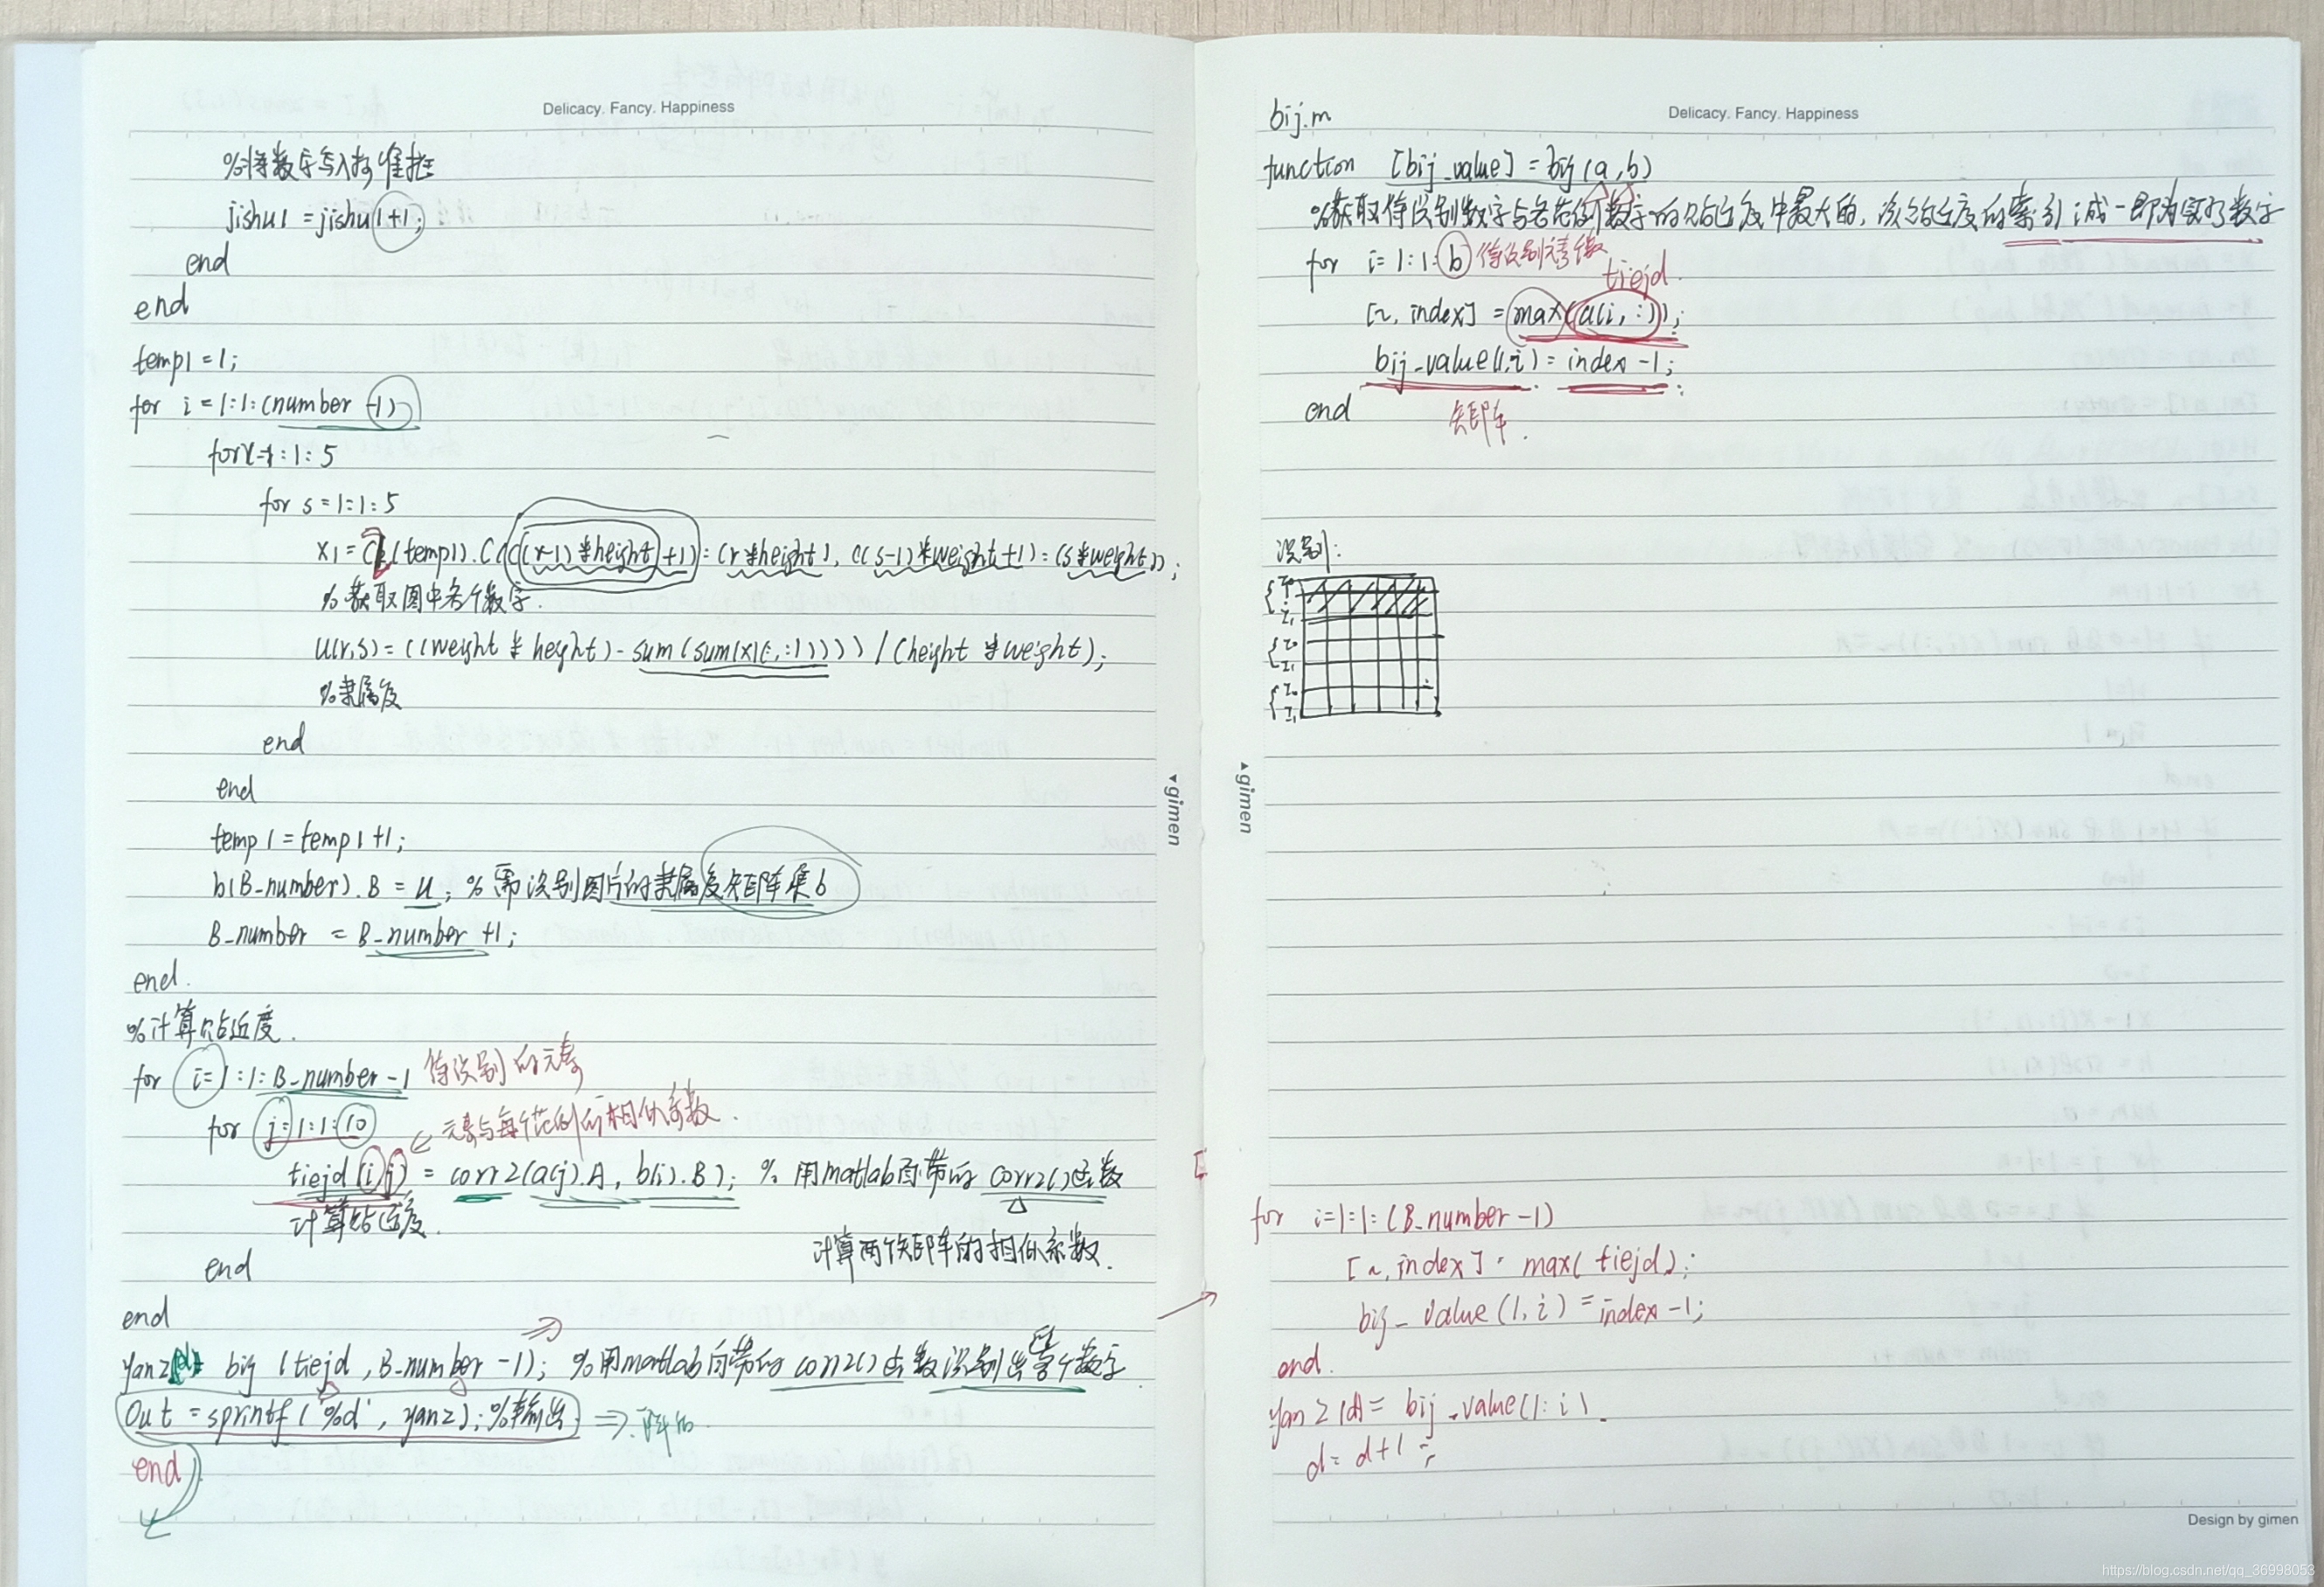 Delicacy. Fancy. Happiness
%将数字写入标准框
jishu1 = jishu1+1;
end
end
temp1 = 1;
for i = 1:1:(number -1)
for r=1:1:5
for s = 1:1:5
x1 = C(temp1).C(((r-1)*height)+1):(r*height), ((s-1)*weight+1):(s*weight));
%获取图中各个数字.
u(r,s) = ((weight * height) - sum(sum(x1(:,:)))) / (height * weight);
%隶属度
end
end
temp1 = temp1 +1;
b(B_number).B = u; % 需识别图片的隶属度矩阵集b
B_number = B_number +1;
end.
%计算贴近度.
for i=1:1:B_number-1 待识别的元素
for j=1:1:10
元素与每个范例的相似系数.
tiejd(i,j) = corr2(a(j).A, b(i).B); % 用matlab自带的 corr2()函数
计算贴近度.
计算两个矩阵的相似系数.
end
end
yanz(d)= bij (tiejd, B_number -1); %用matlab自带的 corr2()函数识别出各个数字
Out = sprintf('%d', yanz); %输出 ⇒
end
▲gimen
bij.m
Delicacy. Fancy. Happiness
function [bij_value] = bij(a,b)
%获取待识别数字与各范例数字的贴近度中最大的,该贴近度的索引减一即为实际数字
for i= 1:1:b 待识别
tiejd.
[~, index] = max(a(i,:));
bij_value(1,i) = index -1;
end
矩阵.
▲gimen
识别:
for i=1:1:(B_number-1)
[~, index] = max( tiejd);
bij_value(1,i) = index -1;
end.
yanz(d) = bij_value(1:i).
d= d+1;
Design by gimen
https://blog.csdn.net/qq_36998053